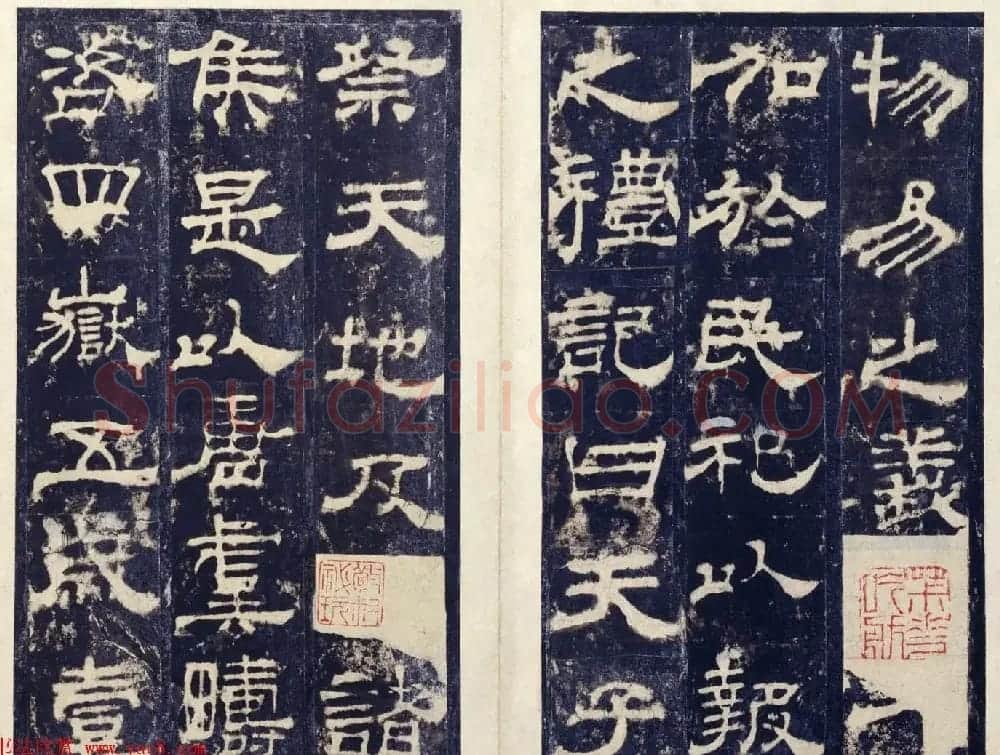 物易之義
加於民祀以報
之禮記曰天子
祭天地及
諸
侯是以唐虞疇
咨四嶽五歲壹
Shufaziliao.COM